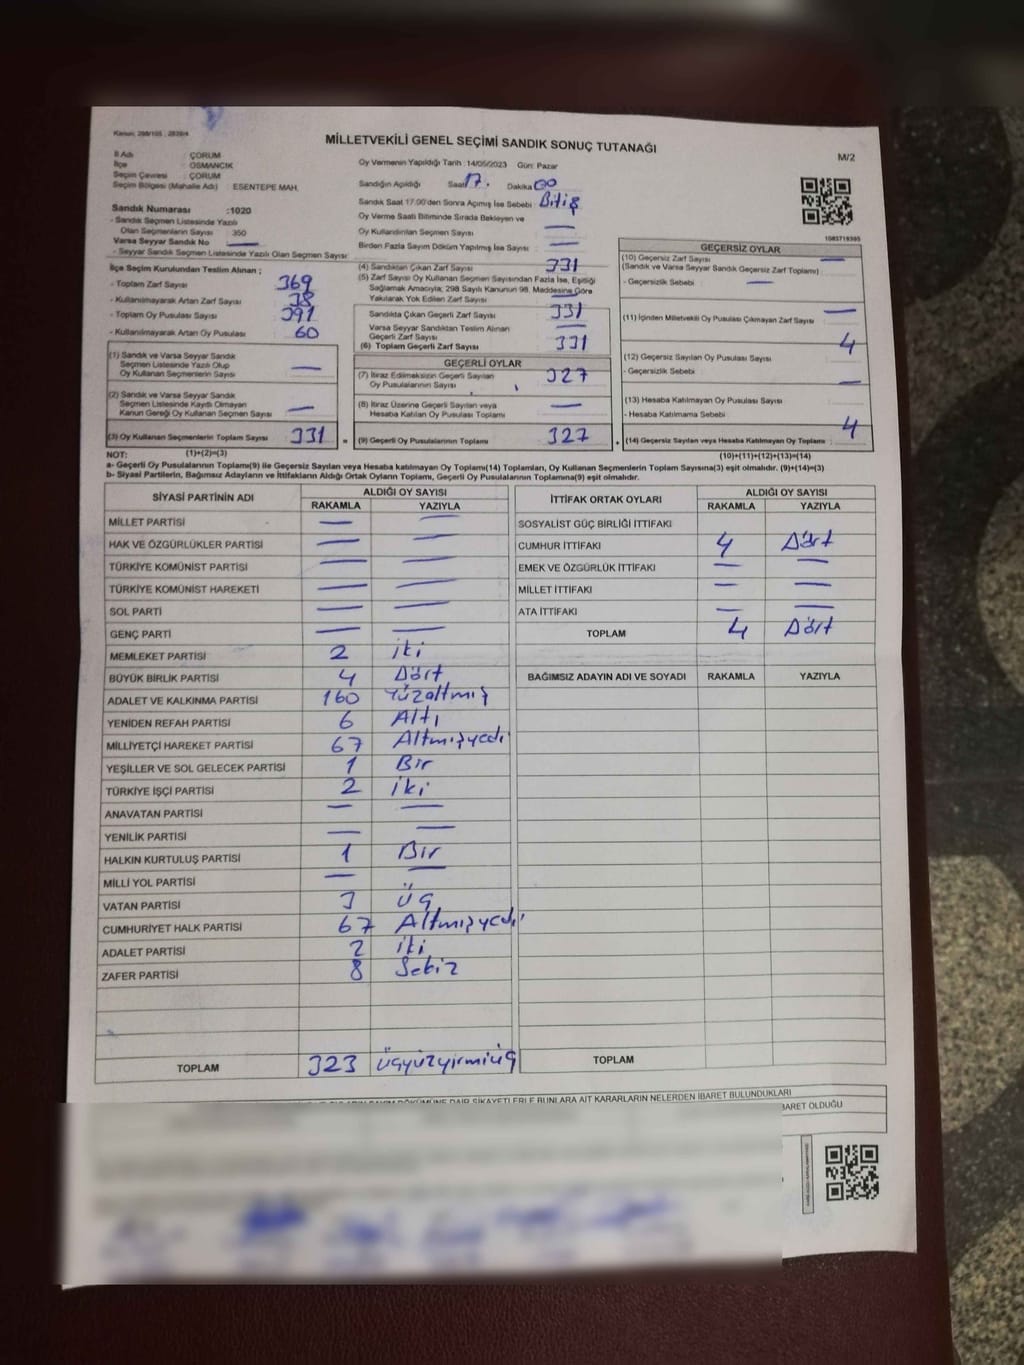 Kanun: 298/105 ; 2839/4
MİLLETVEKİLİ GENEL SEÇİMİ SANDIK SONUÇ TUTANAĞI
M/2
İl Adı : ÇORUM
İlçe : OSMANCIK
Seçim Çevresi : ÇORUM
Seçim Bölgesi (Mahalle Adı) : ESENTEPE MAH.
Oy Vermenin Yapıldığı Tarih : 14/05/2023 Gün: Pazar
Sandığın Açıldığı Saat 17. Dakika 00
Sandık Saat 17.00'den Sonra Açımış İse Sebebi : Bitiş
Oy Verme Saati Bitiminde Sırada Bekleyen ve
Oy Kullandırılan Seçmen Sayısı : —
Birden Fazla Sayım Döküm Yapılmış İse Sayısı : —
Sandık Numarası :1020
- Sandık Seçmen Listesinde Yazılı
Olan Seçmenlerin Sayısı : 350
Varsa Seyyar Sandık No : —
- Seyyar Sandık Seçmen Listesinde Yazılı Olan Seçmen Sayısı:
İlçe Seçim Kurulundan Teslim Alınan ;
- Toplam Zarf Sayısı : 369
- Kullanılmayarak Artan Zarf Sayısı : 38
- Toplam Oy Pusulası Sayısı : 391
- Kullanılmayarak Artan Oy Pusulası : 60
(1) Sandık ve Varsa Seyyar Sandık
Seçmen Listesinde Yazılı Olup
Oy Kullanan Seçmenlerin Sayısı : —
(2) Sandık ve Varsa Seyyar Sandık
Seçmen Listesinde Kaydı Olmayan
Kanun Gereği Oy Kullanan Seçmen Sayısı : —
(3) Oy Kullanan Seçmenlerin Toplam Sayısı : 331 =
(4) Sandıktan Çıkan Zarf Sayısı : 331
(5) Zarf Sayısı Oy Kullanan Seçmen Sayısından Fazla İse, Eşitliği
Sağlamak Amacıyla; 298 Sayılı Kanunun 98. Maddesine Göre
Yakılarak Yok Edilen Zarf Sayısı : —
Sandıkta Çıkan Geçerli Zarf Sayısı : 331
Varsa Seyyar Sandıktan Teslim Alınan
Geçerli Zarf Sayısı : —
(6) Toplam Geçerli Zarf Sayısı : 331
GEÇERLİ OYLAR
(7) İtiraz Edilmeksizin Geçerli Sayılan
Oy Pusulalarının Sayısı : 327
(8) İtiraz Üzerine Geçerli Sayılan veya
Hesaba Katılan Oy Pusulası Toplamı : —
(9) Geçerli Oy Pusulalarının Toplamı : 327 +
1083719395
GEÇERSİZ OYLAR
(10) Geçersiz Zarf Sayısı : —
(Sandık ve Varsa Seyyar Sandık Geçersiz Zarf Toplamı)
- Geçersizlik Sebebi : —
(11) İçinden Milletvekili Oy Pusulası Çıkmayan Zarf Sayısı : —
(12) Geçersiz Sayılan Oy Pusulası Sayısı : 4
- Geçersizlik Sebebi :
(13) Hesaba Katılmayan Oy Pusulası Sayısı : —
- Hesaba Katılmama Sebebi :
(14) Geçersiz Sayılan veya Hesaba Katılmayan Oy Toplamı : 4
NOT: (1)+(2)=(3)
(10)+(11)+(12)+(13)=(14)
a- Geçerli Oy Pusulalarının Toplamı(9) ile Geçersiz Sayılan veya Hesaba katılmayan Oy Toplamı(14) Toplamları, Oy Kullanan Seçmenlerin Toplam Sayısına(3) eşit olmalıdır. (9)+(14)=(3)
b- Siyasi Partilerin, Bağımsız Adayların ve İttifakların Aldığı Ortak Oyların Toplamı, Geçerli Oy Pusulalarının Toplamına(9) eşit olmalıdır.
SİYASİ PARTİNİN ADI ALDIĞI OY SAYISI
RAKAMLA YAZIYLA
MİLLET PARTİSİ — —
HAK VE ÖZGÜRLÜKLER PARTİSİ — —
TÜRKİYE KOMÜNİST PARTİSİ — —
TÜRKİYE KOMÜNİST HAREKETİ — —
SOL PARTİ — —
GENÇ PARTİ — —
MEMLEKET PARTİSİ 2 iki
BÜYÜK BİRLİK PARTİSİ 4 Dört
ADALET VE KALKINMA PARTİSİ 160 Yüzaltmış
YENİDEN REFAH PARTİSİ 6 Altı
MİLLİYETÇİ HAREKET PARTİSİ 67 Altmışyedi
YEŞİLLER VE SOL GELECEK PARTİSİ 1 Bir
TÜRKİYE İŞÇİ PARTİSİ 2 iki
ANAVATAN PARTİSİ — —
YENİLİK PARTİSİ — —
HALKIN KURTULUŞ PARTİSİ 1 Bir
MİLLİ YOL PARTİSİ — —
VATAN PARTİSİ 3 Üç
CUMHURİYET HALK PARTİSİ 67 Altmışyedi
ADALET PARTİSİ 2 iki
ZAFER PARTİSİ 8 Sekiz
TOPLAM 323 üçyüzyirmiüç
İTTİFAK ORTAK OYLARI ALDIĞI OY SAYISI
RAKAMLA YAZIYLA
SOSYALİST GÜÇ BİRLİĞİ İTTİFAKI
CUMHUR İTTİFAKI 4 Dört
EMEK VE ÖZGÜRLÜK İTTİFAKI — —
MİLLET İTTİFAKI — —
ATA İTTİFAKI — —
TOPLAM 4 Dört
BAĞIMSIZ ADAYIN ADI VE SOYADI RAKAMLA YAZIYLA
TOPLAM
DÖKÜMÜNE DAİR ŞİKAYETLERLE BUNLARA AİT KARARLARIN NELERDEN İBARET BULUNDUKLARI
BARET OLDUĞU